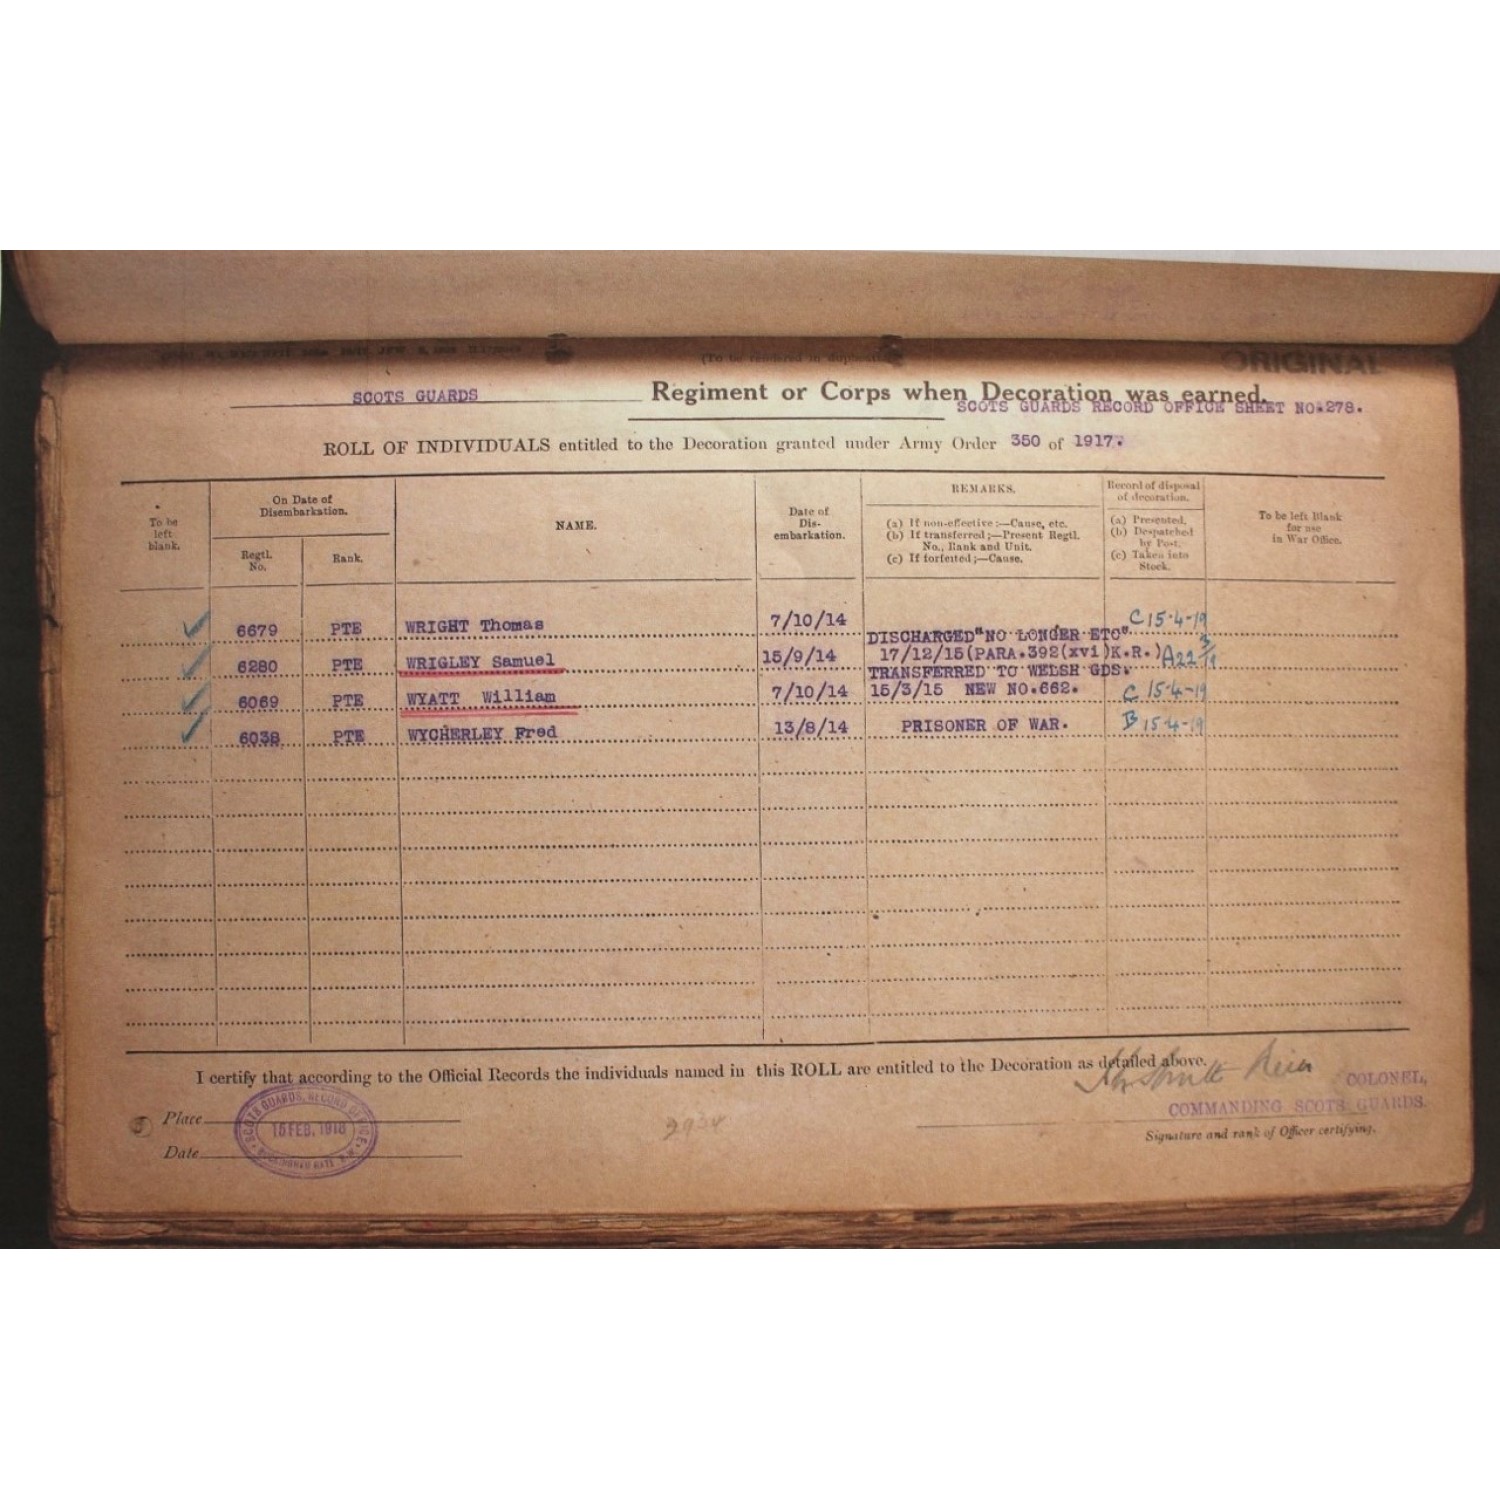 (To be rendered in duplicate)
ORIGINAL
SCOTS GUARDS Regiment or Corps when Decoration was earned.
SCOTS GUARDS RECORD OFFICE SHEET NO.278.
ROLL OF INDIVIDUALS entitled to the Decoration granted under Army Order 350 of 1917.
To be left blank.
On Date of Disembarkation.
Regtl. No.
Rank.
NAME.
Date of Dis-embarkation.
REMARKS.
(a) If non-effective:—Cause, etc.
(b) If transferred;—Present Regtl. No., Rank and Unit.
(c) If forfeited;—Cause.
Record of disposal of decoration.
(a) Presented.
(b) Despatched by Post.
(c) Taken into Stock.
To be left Blank for use in War Office.
6679 PTE WRIGHT Thomas 7/10/14 C 15-4-19
DISCHARGED "NO LONGER ETC"
6280 PTE WRIGLEY Samuel 15/9/14 17/12/15(PARA.392(xvi)K.R.)
TRANSFERRED TO WELSH GDS.
6069 PTE WYATT William 7/10/14 15/3/15 NEW NO.662. C 15-4-19
6038 PTE WYCHERLEY Fred 13/8/14 PRISONER OF WAR. B 15-4-19
I certify that according to the Official Records the individuals named in this ROLL are entitled to the Decoration as detailed above.
COLONEL,
COMMANDING SCOTS GUARDS.
Signature and rank of Officer certifying.
Place
Date
SCOTS GUARDS, RECORD OFFICE.
15 FEB. 1918
BUCKINGHAM GATE S.W.